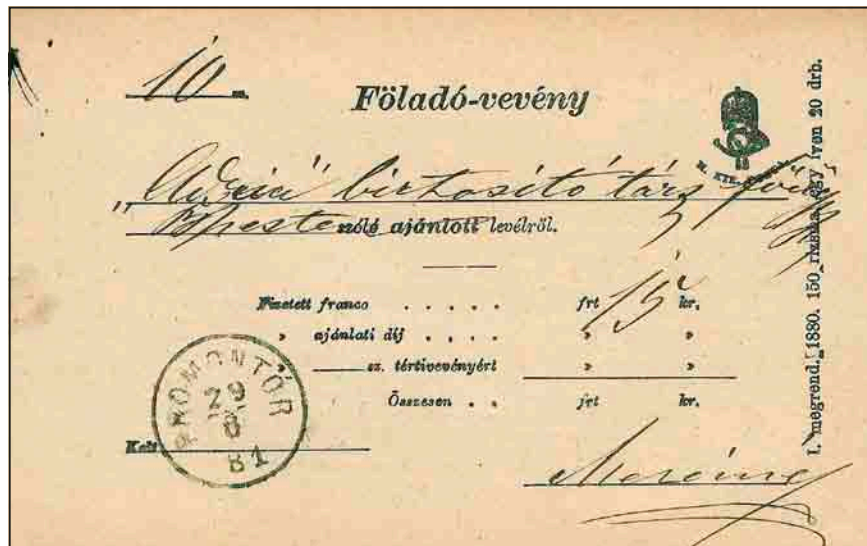 10 sz.
Föladó-vevény
M. KIR. POSTA
"Adria" biztosító társ
Bpesten szóló ajánlott levélről.
Fizetett franco . . . . . frt 15 kr.
" ajánlati díj . . . . " "
sz. tértivevényért " "
Összesen . . frt kr.
Kelt
PROMONTOR
29
81
I. megrend. 1880. 150 rizsma, egy íven 20 drb.